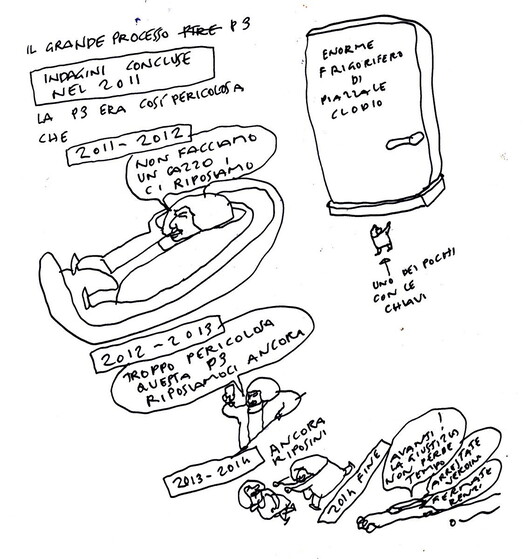 IL GRANDE PROCESSO PTRE P3
INDAGINI CONCLUSE
NEL 2011
LA P3 ERA COSÍ PERICOLOSA
CHE
2011-2012
NON FACCIAMO
UN CAZZO!
CI RIPOSIAMO
ENORME
FRIGORIFERO
DI
PIAZZALE
CLODIO
UNO DEI POCHI
CON LE
CHIAVI
2012-2013
TROPPO PERICOLOSA
QUESTA P3
RIPOSIAMOCI ANCORA
2013-2014
ANCORA
RIPOSINI
2014 FINE
AVANTI!
LA GIUSTIZIA
NON PERDE
TEMPO
ARRESTATE
VERDINI
FERMATE
RENZI